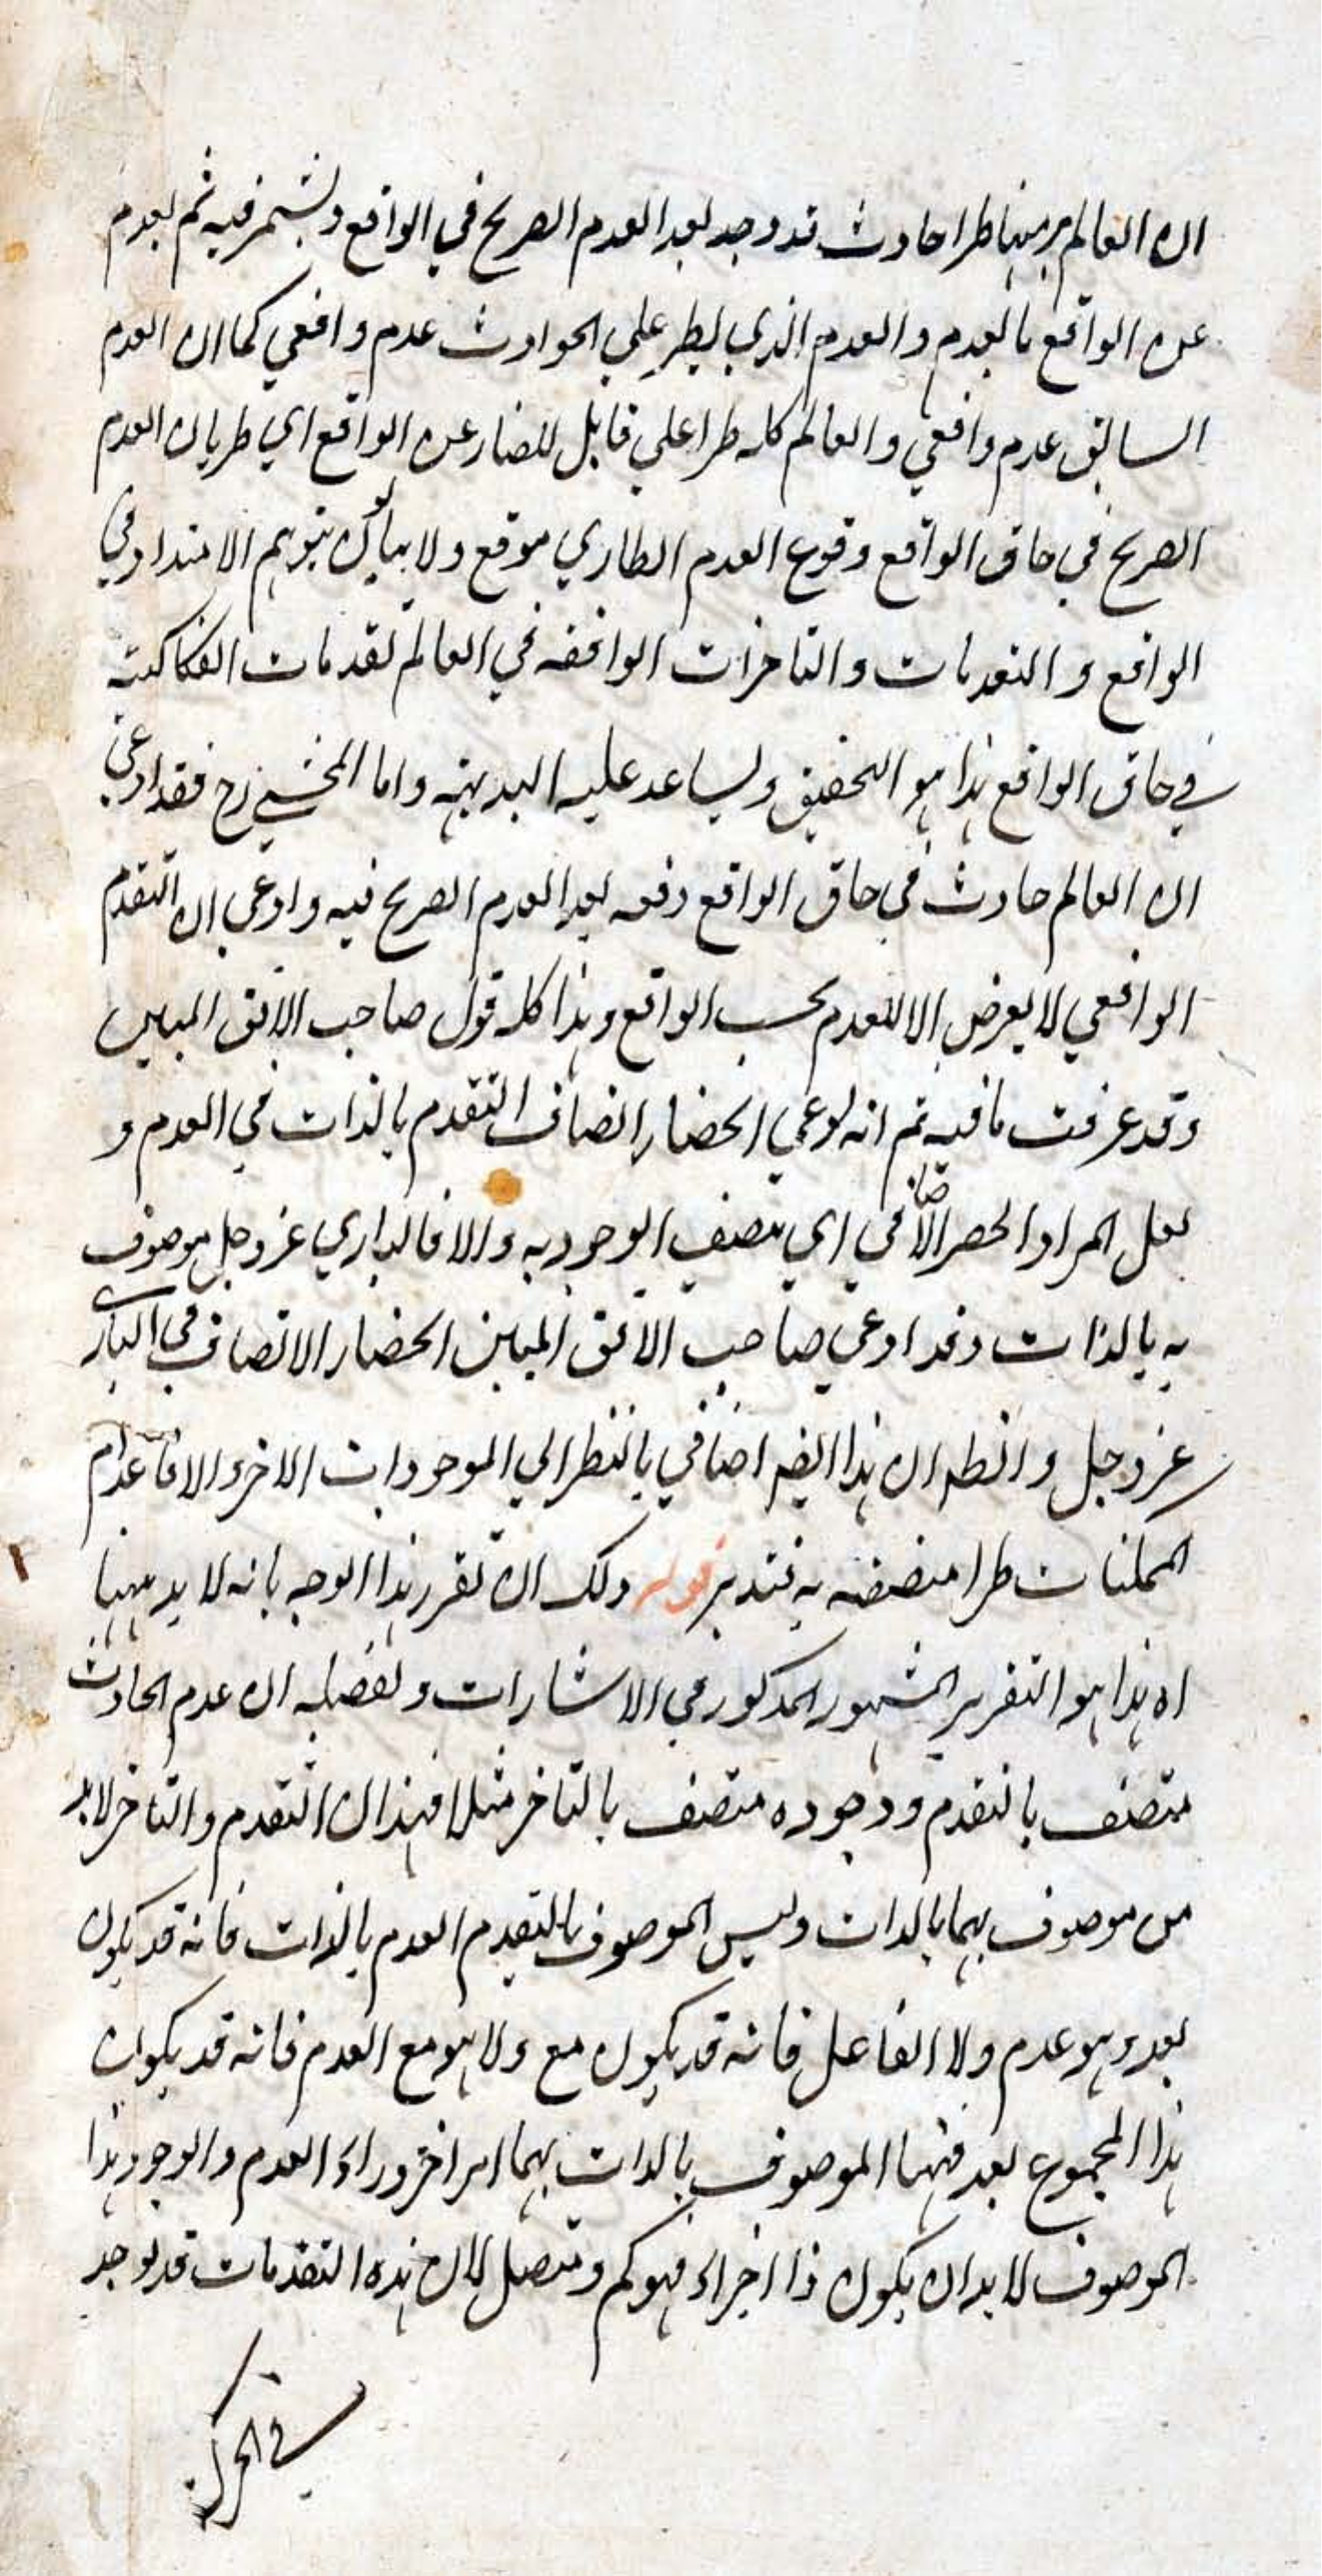 ان العالم برمتها طرا حادث قد وجد بعد العدم الصريح في الواقع ويستمر فيه ثم يعدم
عن الواقع بالعدم والعدم الذي يطرء علي الحوادث عدم واقعي كما ان العدم
السابق عدم واقعي والعالم كله طرا علي قابل للضار عن الواقع اي طريان العدم
الصريح في حاق الواقع وقوع العدم الطاري موقع ولا يبالون بتوهم الامتداد في
الواقع والتقدمات والتاخرات الواقعة في العالم تقدمات انفكاكية
في حاق الواقع هذا هو التحقيق ويساعد عليه البديهة واما المحشي رح فقد ادعي
ان العالم حادث في حاق الواقع دفعه بعد العدم الصريح فيه وادعي ان التقدم
الواقعي لا يعرض الا للعدم بحسب الواقع وهذا كله قول صاحب الافق المبين
وقد عرفت ما فيه ثم انه لو ادعي انحصار اتصاف التقدم بالذات في العدم و
لعل المراد الحصر الاضافي اي تنصيف الوجود به والا فالباري عز وجل موصوف
به بالذات وقد ادعي صاحب الافق المبين انحصار الاتصاف في الباري
عز وجل والظه ان هذا ايضه اضافي بالنظر الي الموجودات الاخر والا فاعدام
الممكنات طرا متصفه به فتدبر قوله ولك ان تقرر هذا الوجه بانه لا بد ههنا
اه هذا هو التقرير المشهور المذكور في الاشارات وتفصيله ان عدم الحادث
متصف بالتقدم ووجوده متصف بالتاخر مثلا فهذان التقدم والتاخر لا بد
من موصوف بهما بالذات وليس الموصوف بالتقدم العدم بالذات فانه قد يكون
بعد وهو عدم ولا الفاعل فانه قد يكون مع ولا هو مع العدم فانه قد يكون
هذا المجموع بعد فههنا الموصوف بالذات بهما امر اخر وراء العدم والوجود هذا
الموصوف لا بد ان يكون ذا اجزاء فهو كم ومتصل لان هذه التقدمات قد توجد
في الحركة